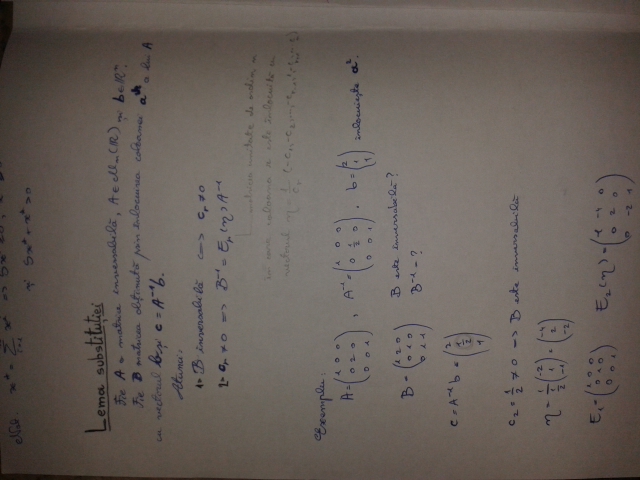 x* = Σ x^i => Sx* ≥ 0,
și Sx* + x* > 0
Lema substituției
Fie A o matrice inversabilă, A ∈ Mm(ℝ) și b ∈ ℝ^m.
Fie B matricea obținută prin înlocuirea coloanei a^r a lui A
cu vectorul b și c = A⁻¹b.
Atunci:
1° B inversabilă <=> c_r ≠ 0
2° c_r ≠ 0 => B⁻¹ = E_r(η) A⁻¹
matricea unitate de ordin m
în care coloana r este înlocuită cu
vectorul η = 1/c_r (-c_1, -c_2, ...,
Exemplu:
A = (1 0 0; 0 2 0; 0 0 1), A⁻¹ = (1 0 0; 0 1/2 0; 0 0 1), b = (2; 1; 1) înlocuiește a².
B = (1 2 0; 0 1 0; 0 1 1) B este inversabilă?
B⁻¹ = ?
c = A⁻¹b = (2; 1/2; 1)
c₂ = 1/2 ≠ 0 => B este inversabilă
η = 1/(1/2) (-2; 1; -1) = (-4; 2; -2)
E₂ = (1 0 0; 0 1 0; 0 0 1) E₂(η) = (1 -4 0; 0 2 0; 0 -2 1)